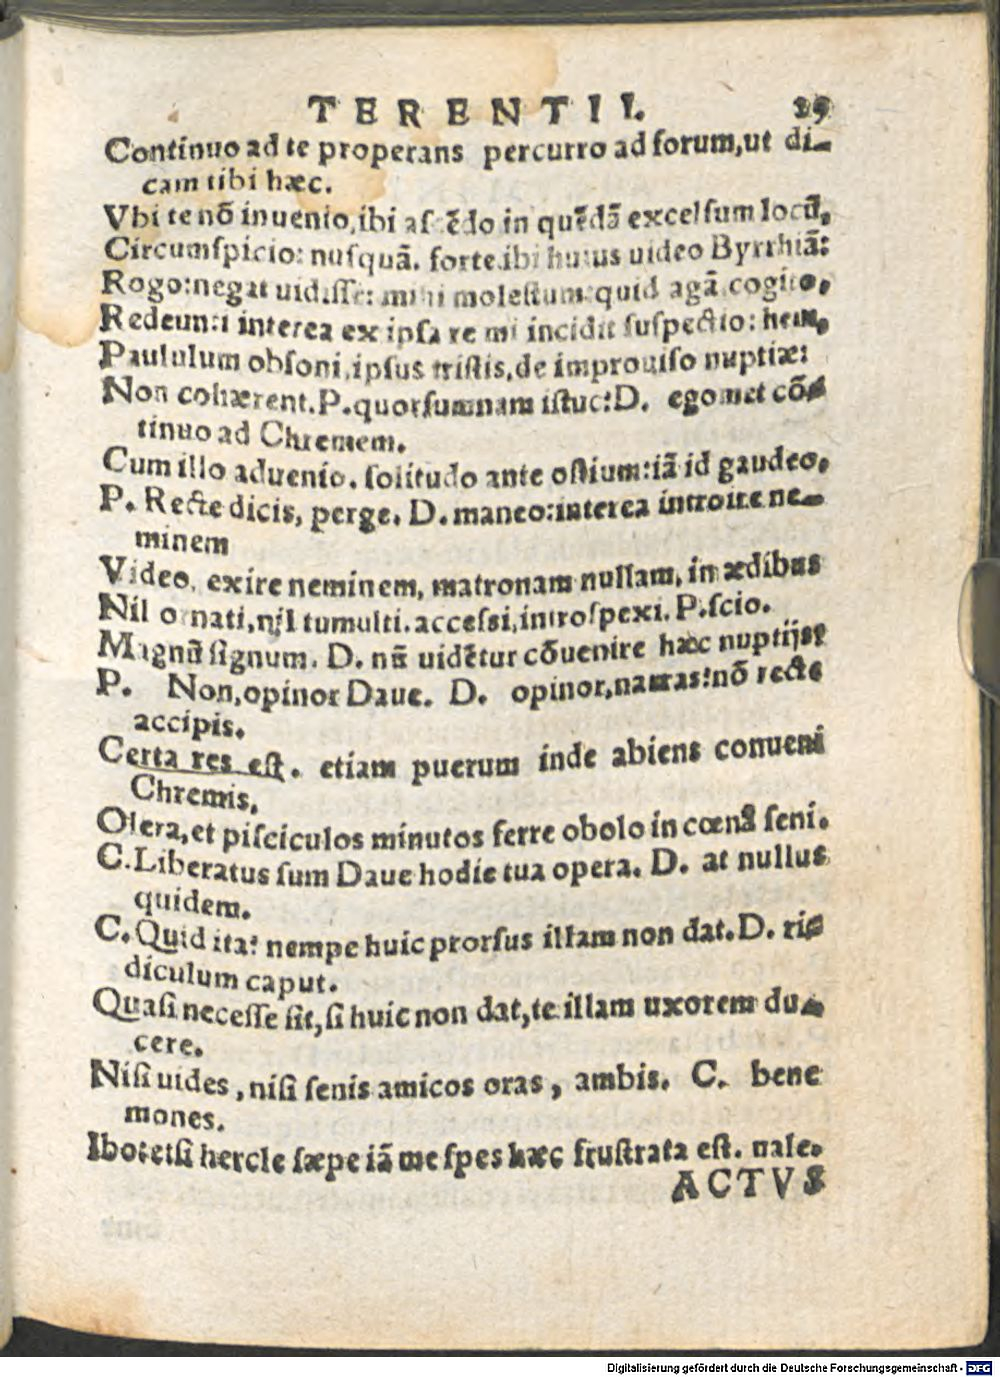 TERENTII. 29
Continuo ad te properans percurro ad forum,ut di-
cam tibi hæc.
Vbi te nõ inuenio,ibi aſcẽdo in quẽdã excelſum locũ,
Circumſpicio: nuſquã. forte ibi huius uideo Byrrhiã:
Rogo:negat uidiſſe: mihi moleſtum: quid agã cogito,
Redeunti interea ex ipſa re mi incidit ſuſpectio: hem,
Paululum obſoni,ipſus triſtis,de improuiſo nuptiæ:
Non cohærent.P.quorſumnam iſtuc?D. egomet cõ-
tinuo ad Chremem.
Cum illo aduenio. ſolitudo ante oſtium:iã id gaudeo,
P. Recte dicis, perge. D. maneo:interea introire ne-
minem
Video, exire neminem, matronam nullam, in ædibus
Nil ornati,nil tumulti.acceſſi,introſpexi. P.ſcio.
Magnũ ſignum. D. nũ uidẽtur cõuenire hæc nuptijs?
P. Non,opinor Daue. D. opinor,narras?nõ recte
accipis.
Certa res eſt. etiam puerum inde abiens conueni
Chremis,
Olera,et piſciculos minutos ferre obolo in cœnã ſeni.
C.Liberatus ſum Daue hodie tua opera. D. at nullus
quidem.
C.Quid ita? nempe huic prorſus illam non dat.D. ri-
diculum caput.
Quaſi neceſſe ſit,ſi huic non dat,te illam uxorem du-
cere.
Niſi uides, niſi ſenis amicos oras, ambis. C. bene
mones.
Ibo:etſi hercle ſæpe iã me ſpes hæc fruſtrata eſt. uale.
ACTVS
Digitalisierung gefördert durch die Deutsche Forschungsgemeinschaft - DFG